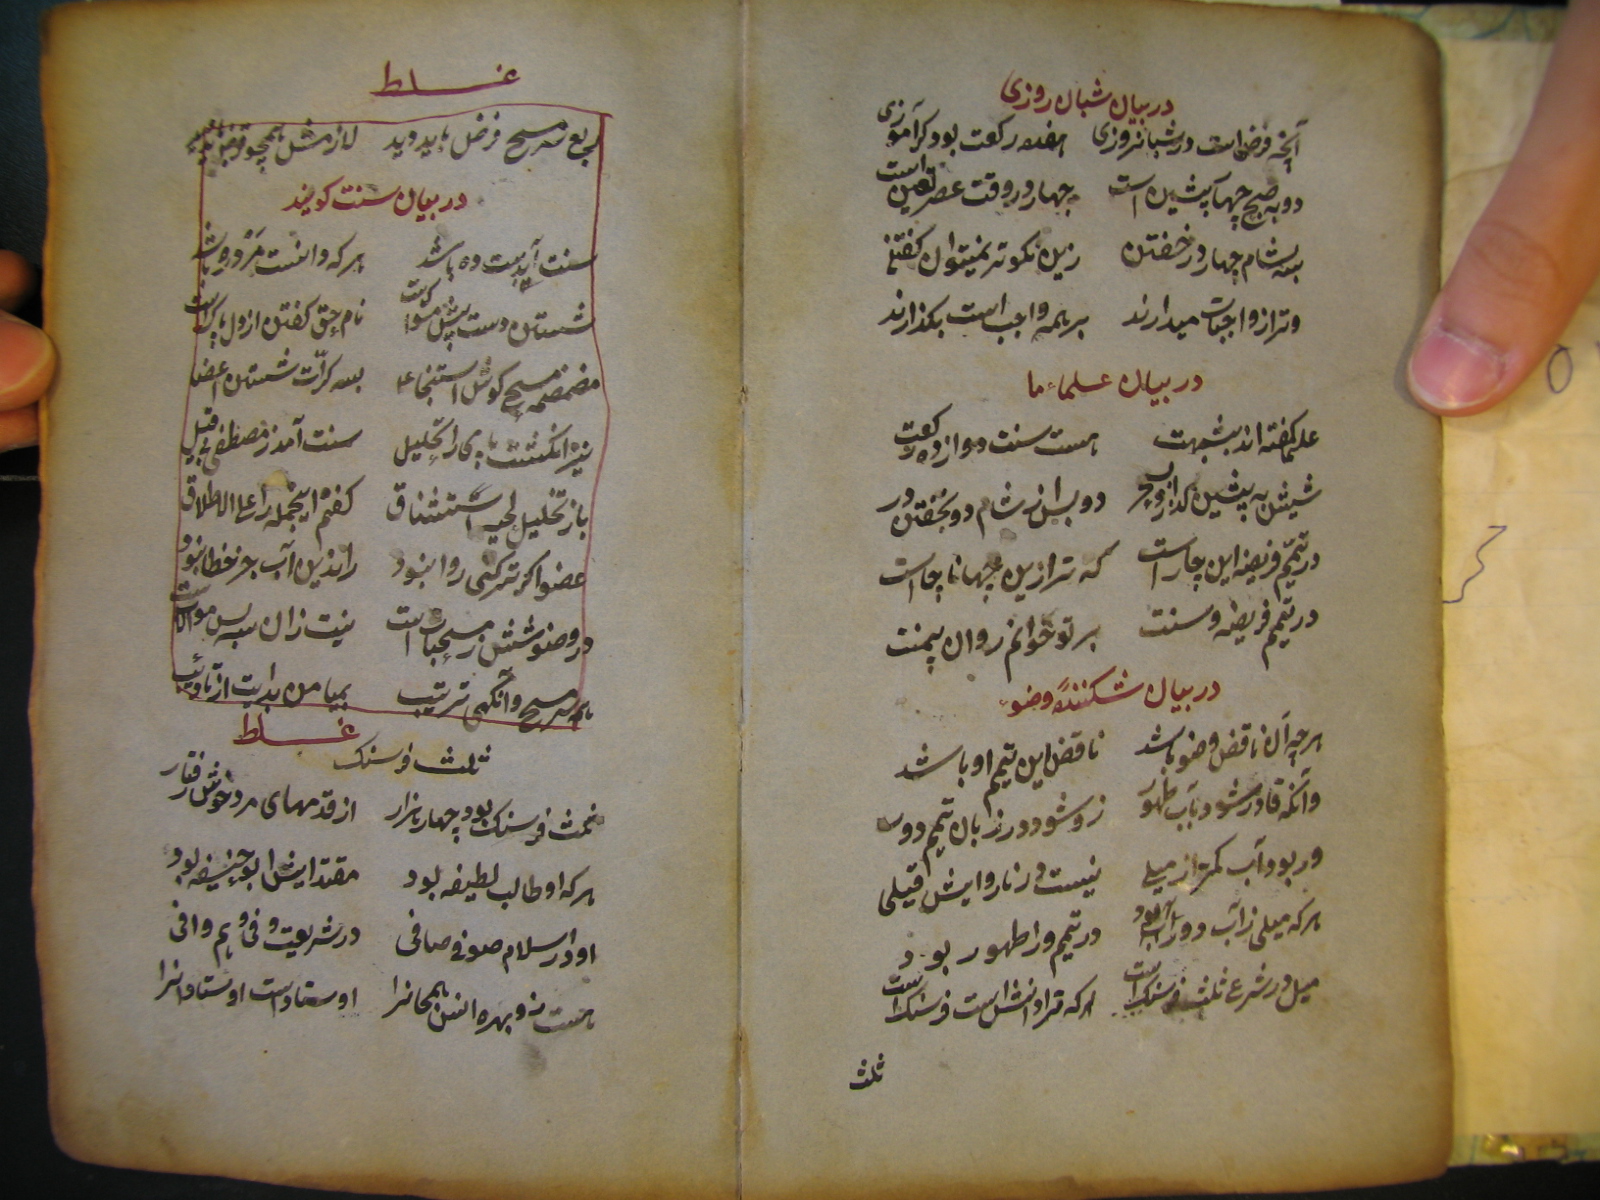 در بیان شبان روزی
آنچه فرض است در شبانروزی هفده رکعت بود کرآموزی
دو به صبح چهار پیشین است چهار در وقت عصر تعیین است
سه بشام چهار در خفتن زین نکوتر نمیتوان گفتن
وتر از واجبات میدارند بر همه واجب است بگذارند
در بیان علماء ما
علما گفته اند بیشبهت هست سنت دوازده رکعت
شش به پیشین گذار و دو بس از شام دو بخفتن در
در تیمم فریضه این چار است که تر ازین چهار ناچار است
در تیمم فریضه و سنت بر تو خوانم روان بیمنت
در بیان شکنندهٔ وضو
هر چه آن ناقض وضو باشد ناقض این تیمم او باشد
وانکه قادر شود بآب طهور زو شود در زبان تیمم دور
ور بود آب کمتر از میلی نیست در نا روایش قیلی
هر که میلی ز آب دور بود در تیمم ورا طهور بود
میل در شرع ثلث فرسنک است هر که ترا دانش است فرسنک است
ثلث
غلط
ربع سر مسح فرض باید دید
در بیان سنت گویند
سنت آبدست ده باشد هر که دانست مزد وره باشد
شستن دست پیش مسواک است نام حق گفتن از دل پاک است
مضمضه مسح گوش استنجا سه کرّت شستن اعضا
نیز انگشت پای را تخلیل سنت آمد ز مصطفی بی قیل
باز تخلیل لحیه استنشاق گفتم اینجمله را علی الاطلاق
عضو اگر تر کنی روا نبود راندین آب جز خطا نبود
در وضو شش ز مستحبات است نیت زان سپس موالات
همه سر مسح وآنگهی ترتیب بمیامن بدایت از تادیب
غلط
ثلث فرسنک
ثلث فرسنک بود چهار هزار از قدمهای مرد خوش رفتار
هر که او طالب لطیفه بود مقتدایش ابو حنیفه بود
او در اسلام صوفی صافی در شریعت وفی و هم وافی
هست زو بهره انس همجانرا اوستاد است اوستادانرا